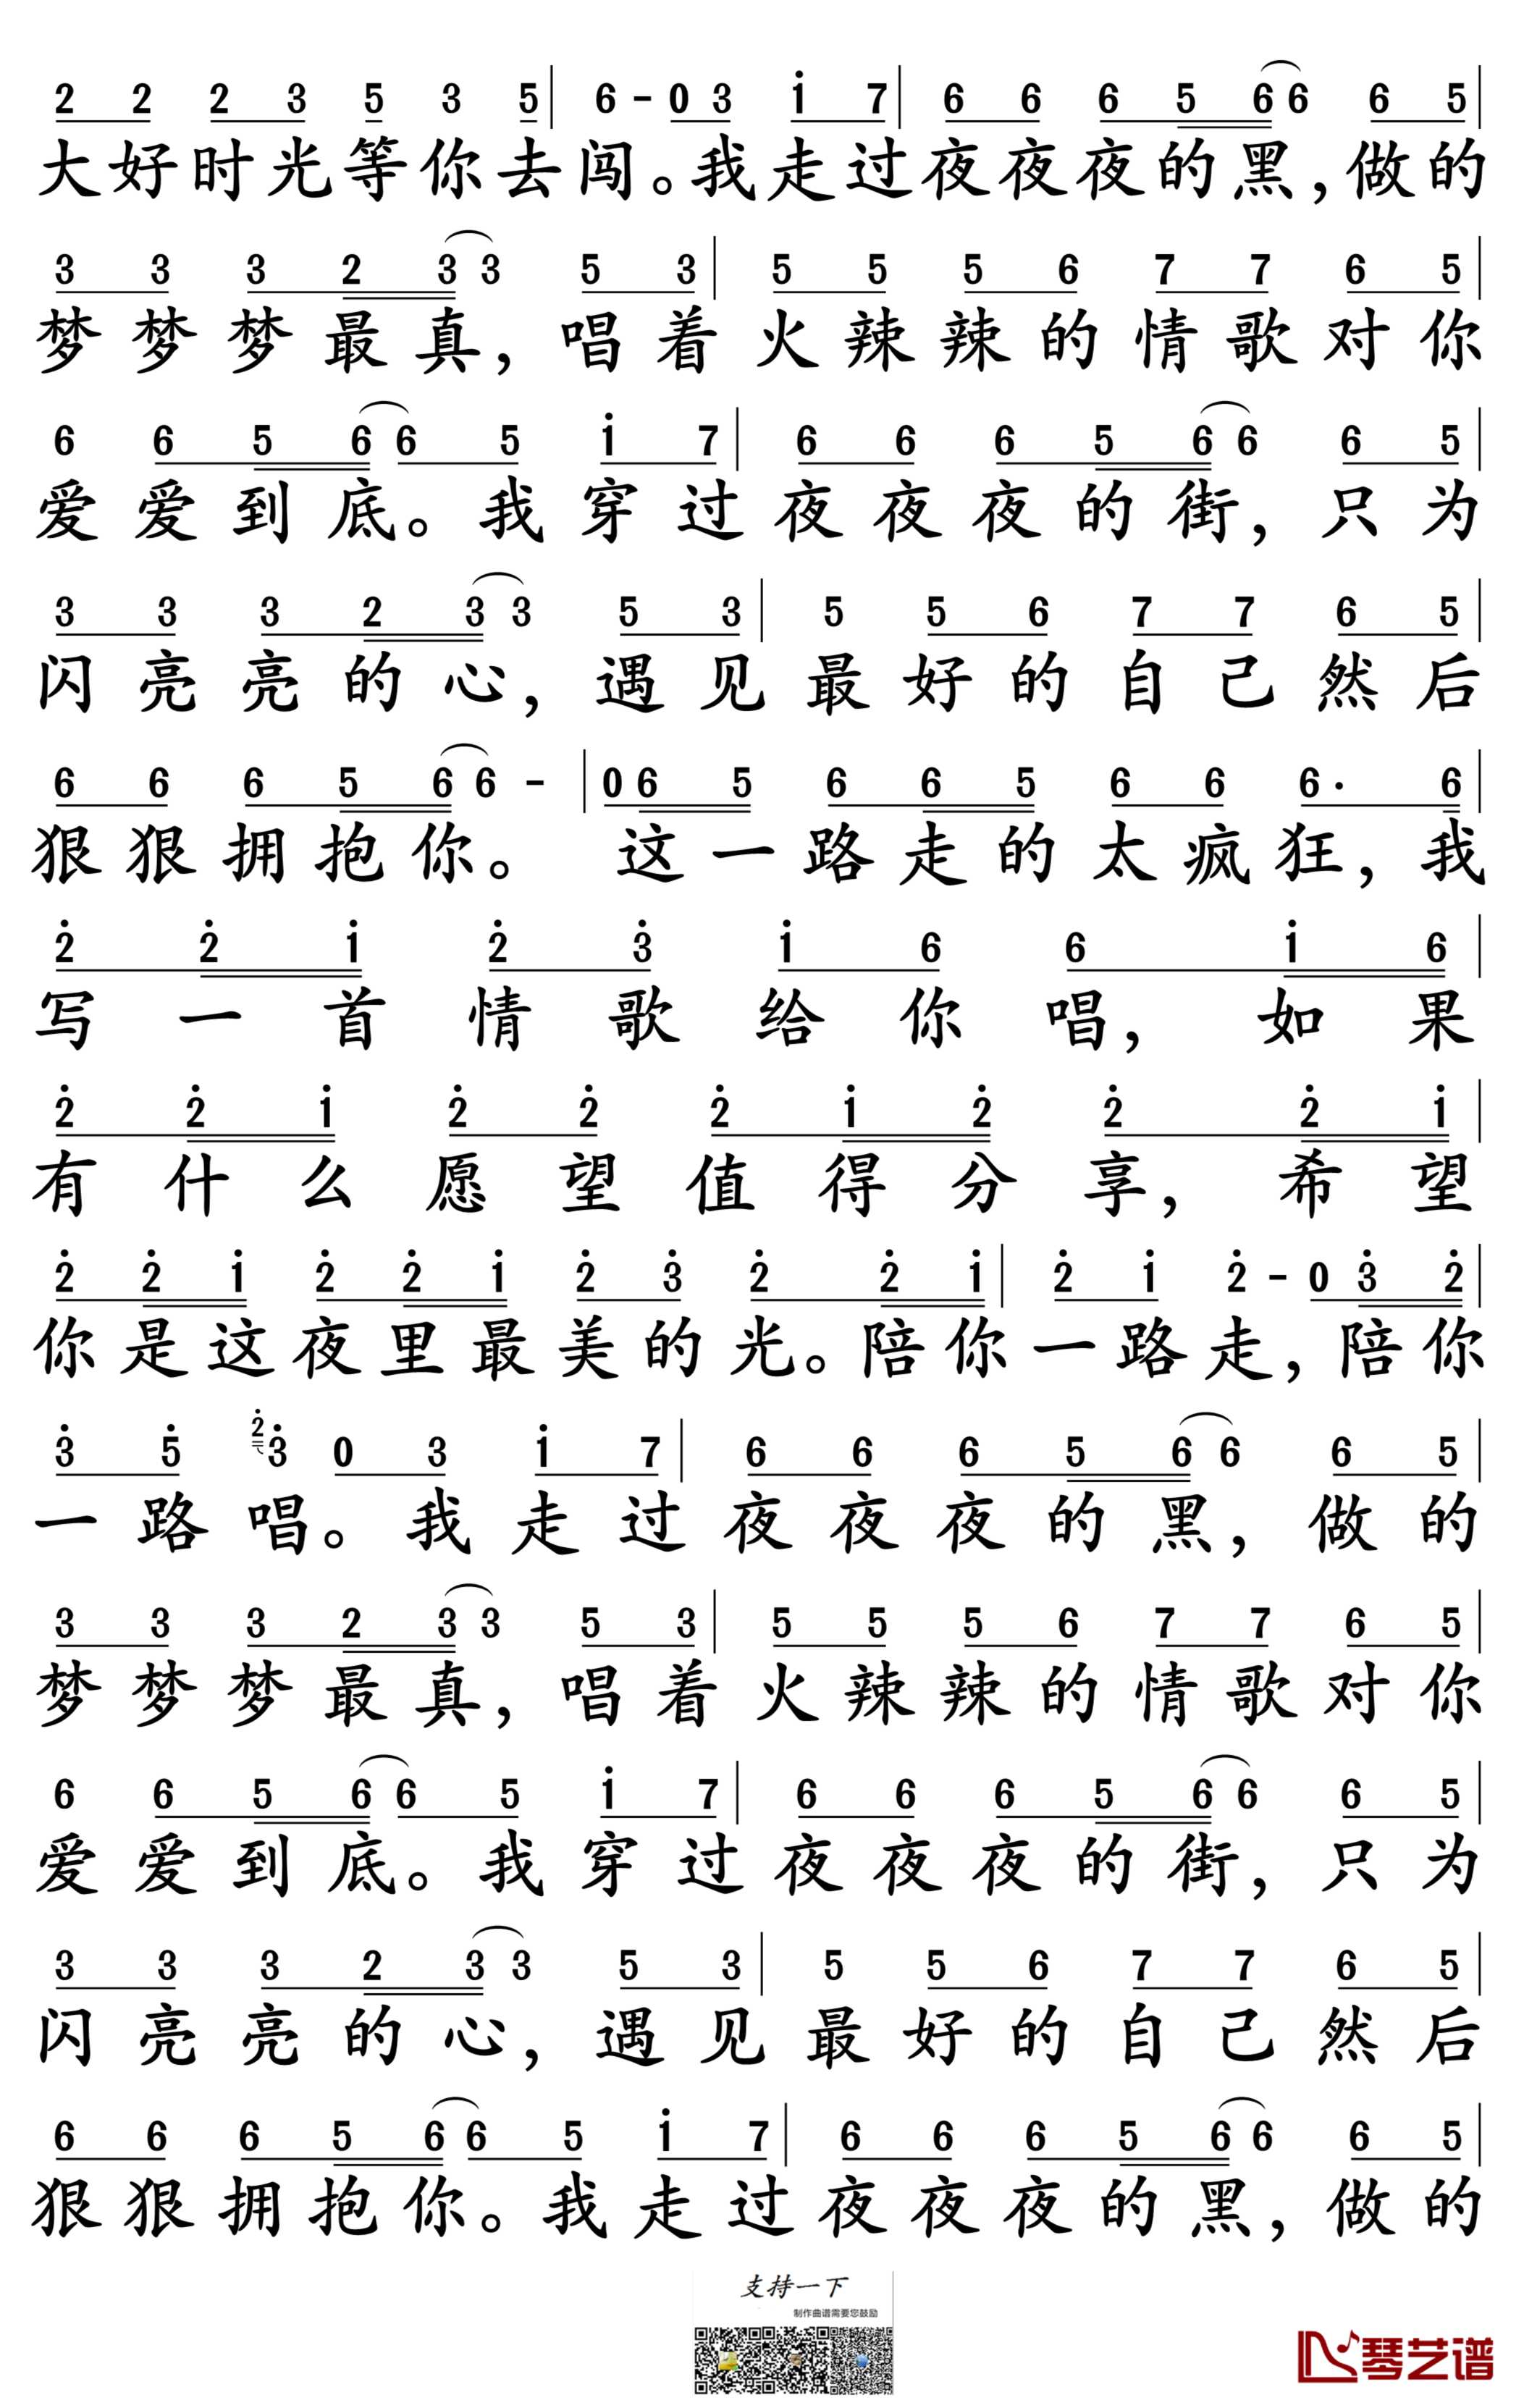 2 2 2 3 5 3 5 | 6 - 0 3 i 7 | 6 6 6 5 6 6 6 5 |
大好时光等你去闯。我走过夜夜夜的黑,做的
3 3 3 2 3 3 5 3 | 5 5 5 6 7 7 6 5 |
梦梦梦最真,唱着火辣辣的情歌对你
6 6 5 6 6 5 i 7 | 6 6 6 5 6 6 6 5 |
爱爱到底。我穿过夜夜夜的街,只为
3 3 3 2 3 3 5 3 | 5 5 6 7 7 6 5 |
闪亮亮的心,遇见最好的自己然后
6 6 6 5 6 6 - | 0 6 5 6 6 5 6 6 6· 6 |
狠狠拥抱你。这一路走的太疯狂,我
2̇ 2̇ i 2̇ 3̇ i 6 6 i 6 |
写一首情歌给你唱,如果
2̇ 2̇ i 2̇ 2̇ 2̇ i 2̇ 2̇ 2̇ i |
有什么愿望值得分享,希望
2̇ 2̇ i 2̇ 2̇ i 2̇ 3̇ 2̇ 2̇ i | 2̇ i 2̇ - 0 3̇ 2̇ |
你是这夜里最美的光。陪你一路走,陪你
3̇ 5̇ 2̇ 3̇ 0 3 i 7 | 6 6 6 5 6 6 6 5 |
一路唱。我走过夜夜夜的黑,做的
3 3 3 2 3 3 5 3 | 5 5 5 6 7 7 6 5 |
梦梦梦最真,唱着火辣辣的情歌对你
6 6 5 6 6 5 i 7 | 6 6 6 5 6 6 6 5 |
爱爱到底。我穿过夜夜夜的街,只为
3 3 3 2 3 3 5 3 | 5 5 6 7 7 6 5 |
闪亮亮的心,遇见最好的自己然后
6 6 6 5 6 6 5 i 7 | 6 6 6 5 6 6 6 5 |
狠狠拥抱你。我走过夜夜夜的黑,做的
支持一下
制作曲谱需要您鼓励
琴艺谱